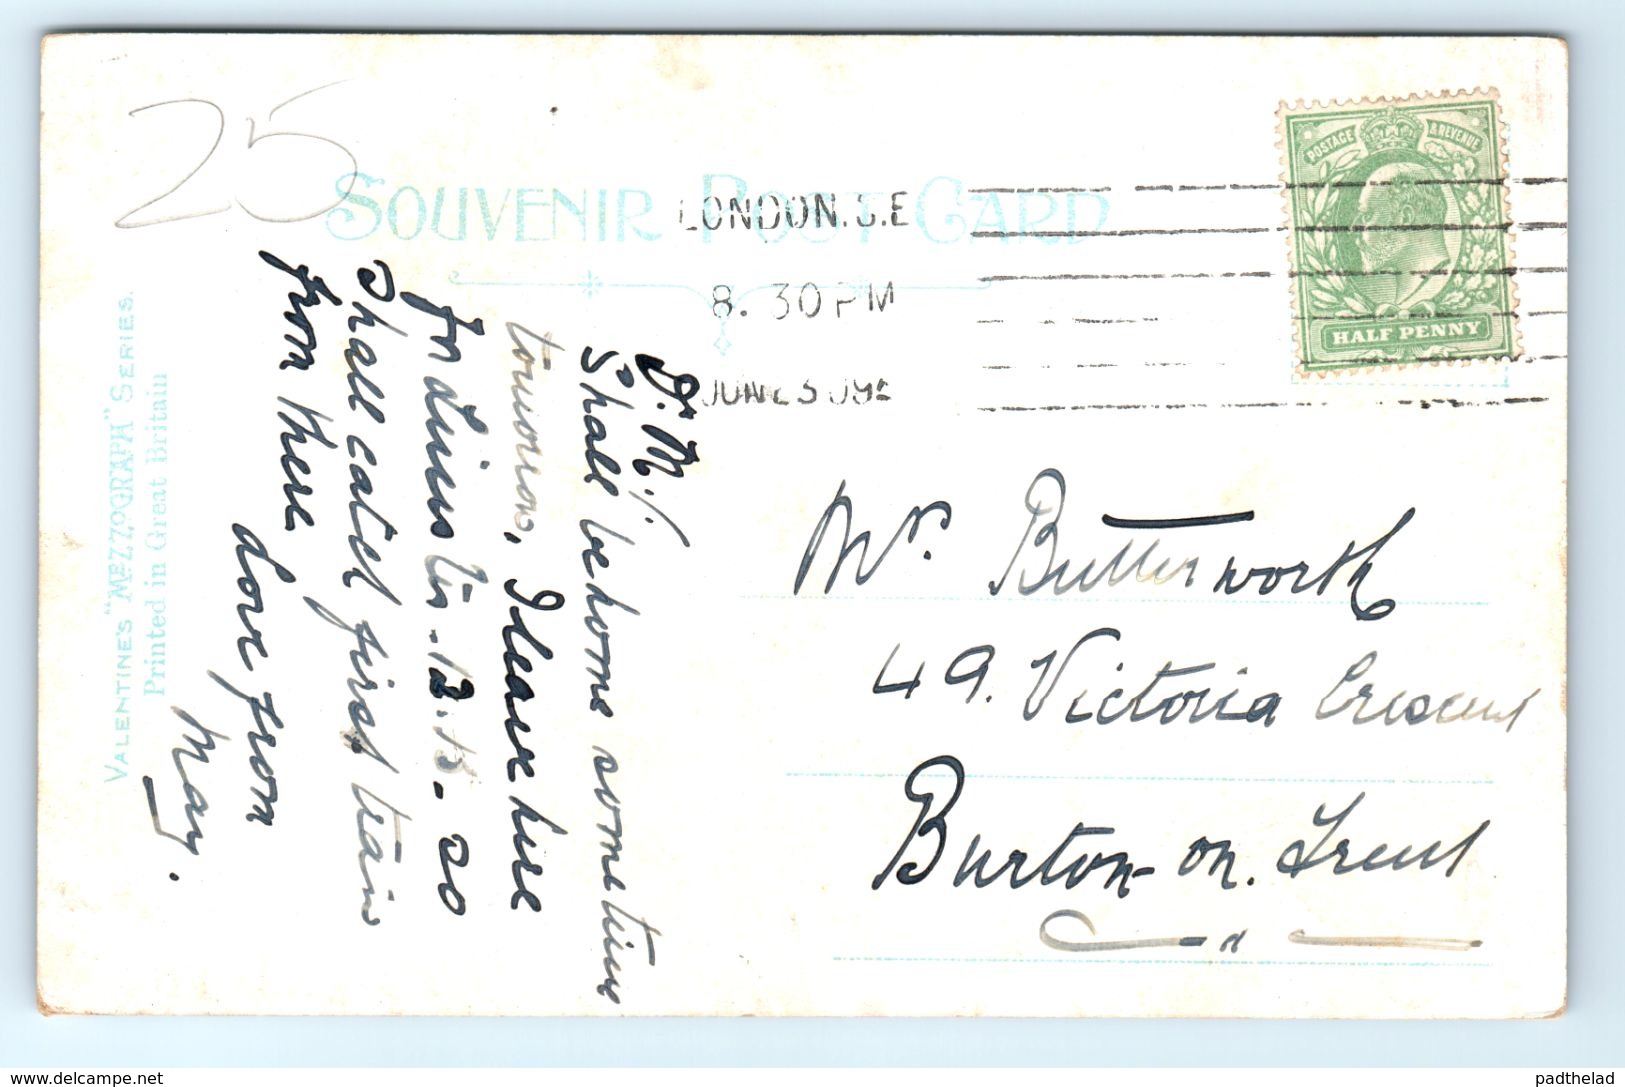 25
SOUVENIR POST CARD
LONDON.S.E
8. 30 PM
JUN 23 09
POSTAGE & REVENUE
HALF PENNY
VALENTINE'S "MEZZOGRAPH" SERIES.
Printed in Great Britain
D. M.
Shall be home sometime
tomorrow, I leave here
for 12.15 - so
Shall catch first train
from there
Love from
May.
Mr. Butterworth
49. Victoria Crescent
Burton-on. Trent
www.delcampe.net
padthelad